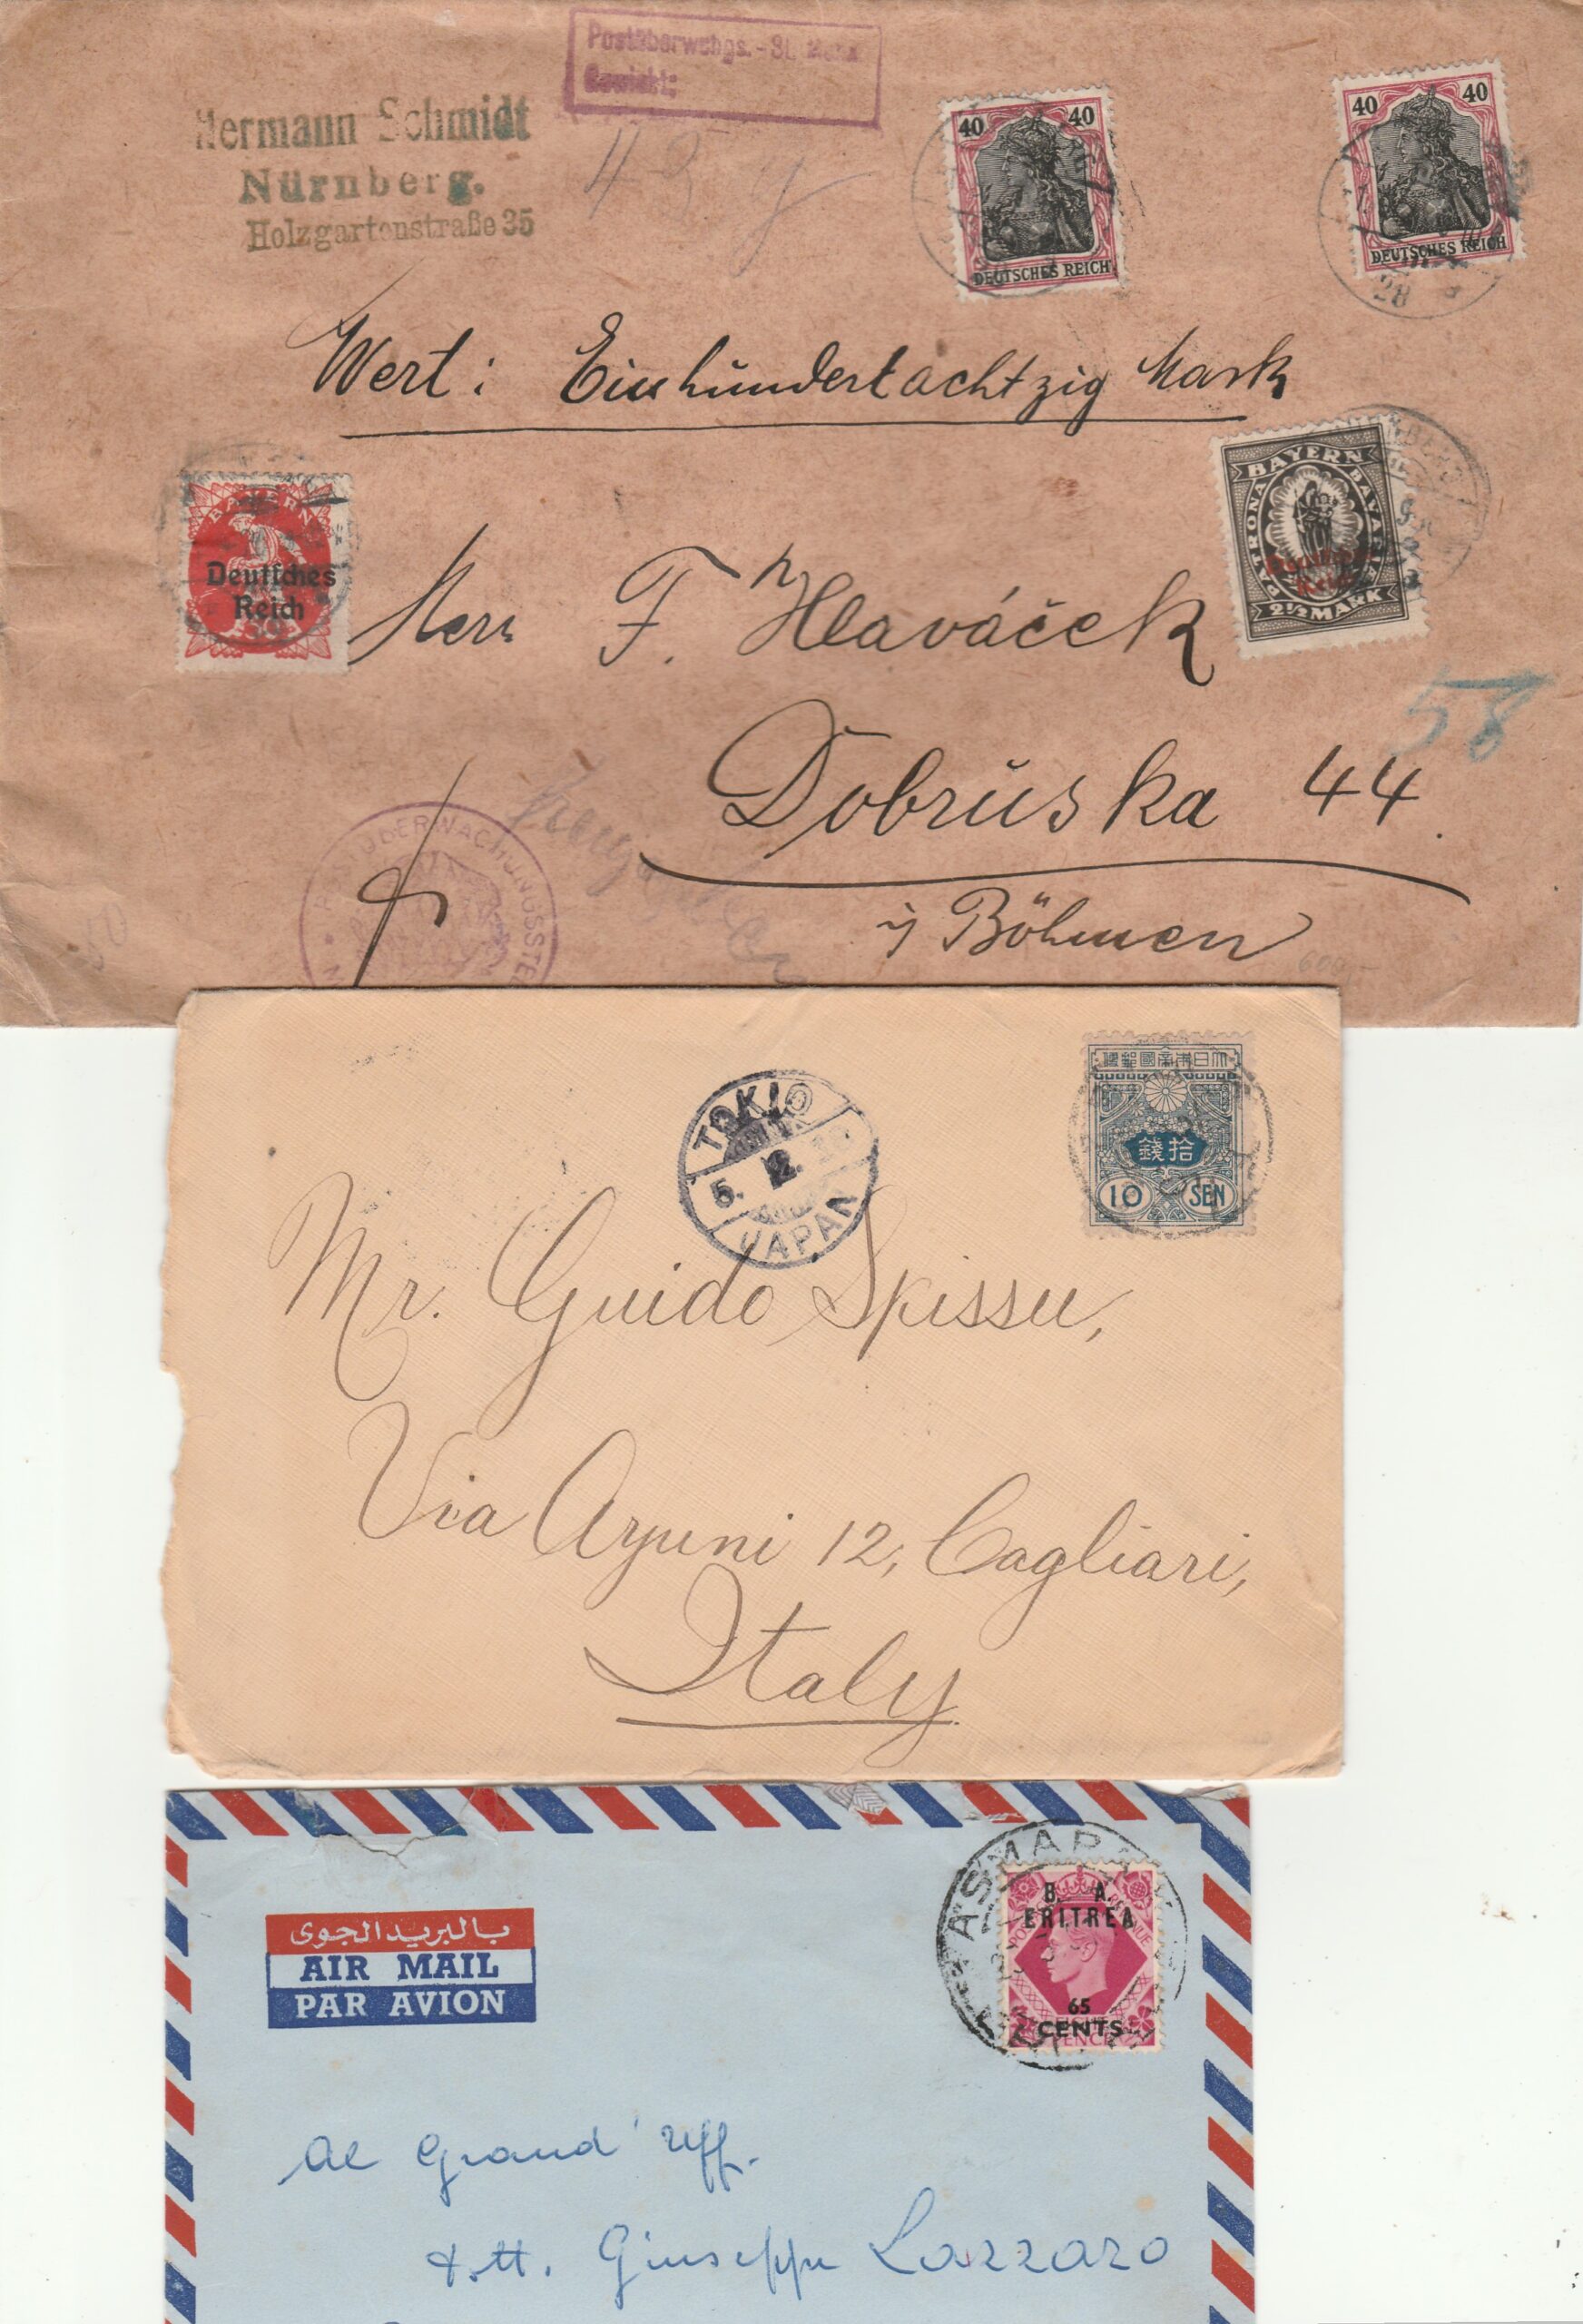 Postüberwchgs.-St.
Gewicht:
Hermann Schmidt
Nürnberg.
Holzgartenstraße 35
43 g
40 40
DEUTSCHES REICH
40 40
DEUTSCHES REICH
28
Wert: Einhundertachtzig Mark
BAYERN
Deutsches
Reich
BAYERN
PATRONA BAVARIAE
2½ MARK
Herrn F. Hlaváček
58
Dobruška 44.
i/ Böhmen
POSTÜBERWACHUNGSSTELLE
大日本帝國郵便
拾錢
10 SEN
TOKIO
5. 12.
JAPAN
Mr. Guido Spissu,
Via Azuni 12, Cagliari,
Italy
بالبريد الجوى
AIR MAIL
PAR AVION
ASMARA
B. A.
ERITREA
65
CENTS
Al Grand'Uff.
dott. Giuseppe Lazzaro